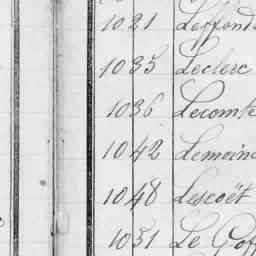 1021 Leffond
1035 Leclerc
1036 Lecomte
1042 Lemoine
1048 Lescoët
1051 Le Goff